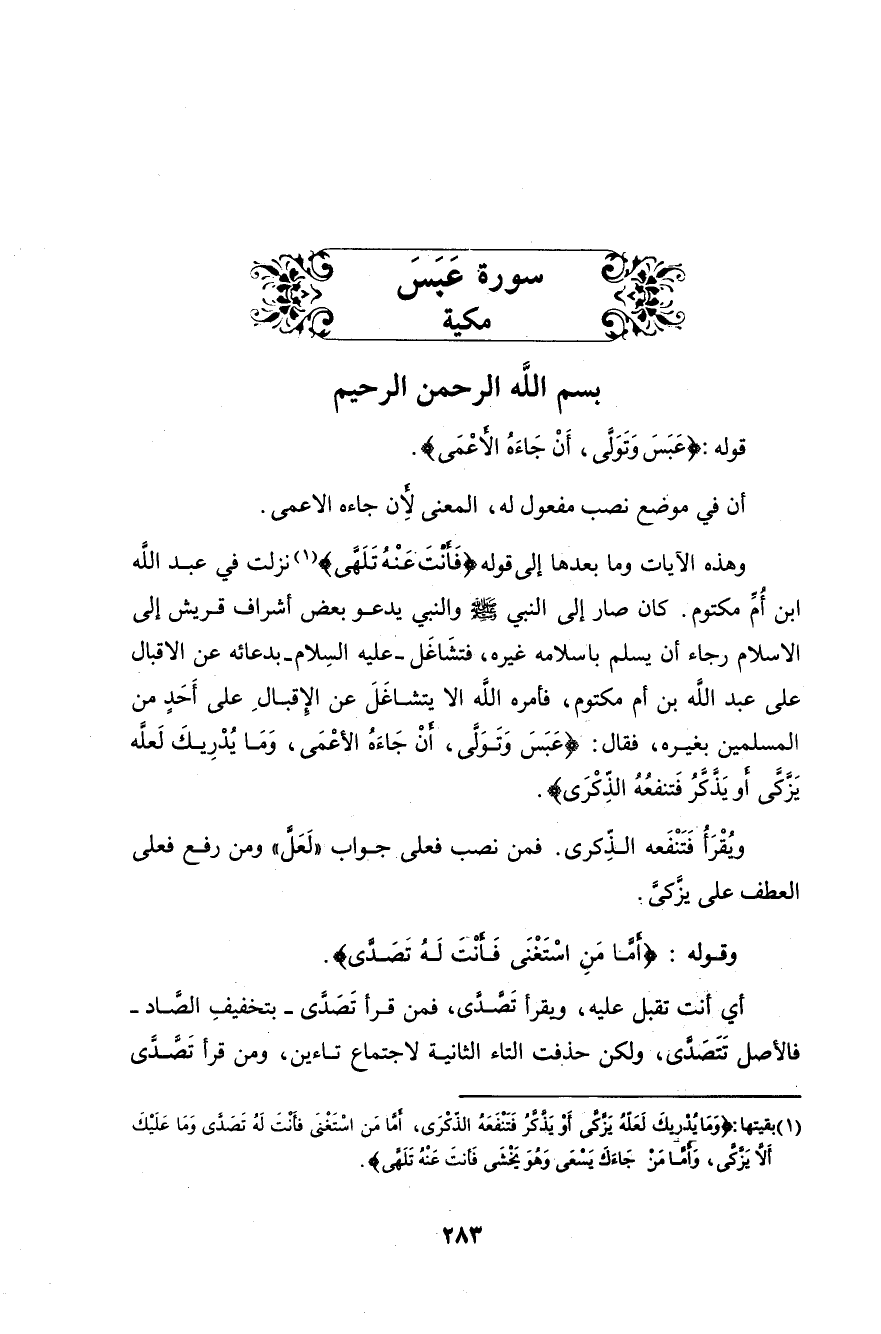 سورة عَبَسَ
مكية
بسم اللَّه الرحمن الرحيم
قوله :﴿عَبَسَ وَتَوَلَّى ، أَنْ جَاءَهُ الأَعْمَى﴾ .
أن في موضع نصب مفعول له، المعنى لأِن جاءه الاعمى .
وهذه الآيات وما بعدها إلى قوله ﴿فَأَنْتَ عَنْهُ تَلَهَّى﴾(١) نزلت في عبد اللَّه
ابن أُمِّ مكتوم . كان صار إلى النبي ﷺ والنبي يدعو بعض أشراف قريش إلى
الاسلام رجاء أن يسلم باسلامه غيره، فتشَاغَل - عليه السلام - بدعائه عن الاقبال
على عبد اللَّه بن أم مكتوم ، فأمره اللَّه الا يتشاغَلَ عن الإِقبالِ على أَحَدٍ من
المسلمين بغيره، فقال : ﴿عَبَسَ وَتَوَلَّى ، أَنْ جَاءَهُ الأعْمَى ، وَمَا يُدْرِيكَ لَعلَّه
يَزَّكَّى أو يَذَّكَّرُ فَتنفعُهُ الذِّكْرَى﴾ .
ويُقْرَأُ فَتَنْفَعه الذِّكرى . فمن نصب فعلى جواب «لَعَلَّ» ومن رفع فعلى
العطف على يزَّكىَّ .
وقوله : ﴿أَمَّا مَنِ اسْتَغْنَى فَأَنْتَ لَهُ تَصَدَّى﴾ .
أي أنت تقبل عليه ، ويقرأ تَصَّدَّى، فمن قرأ تَصَدَّى - بتخفيفِ الصَّاد -
فالأصل تَتَصَدَّى، ولكن حذفت التاء الثانية لاجتماع تاءين، ومن قرأ تَصَّدَّى
(١) بقيتها : ﴿وَمَا يُدْرِيكَ لَعَلّهُ يَزَّكَّى أَوْ يَذَّكَّرُ فَتَنْفَعَهُ الذّكْرَى، أَمَّا مَن اسْتَغْنَى فأنْتَ لَهُ تَصَدَّى وَمَا عَلَيْكَ
ألَّا يَزَّكَّى ، وَأَمَّا مَنْ جَاءَكَ يَسْعَى وَهُوَ يَخْشَى فَأنتَ عَنْهُ تَلَهَّى﴾ .
٢٨٣